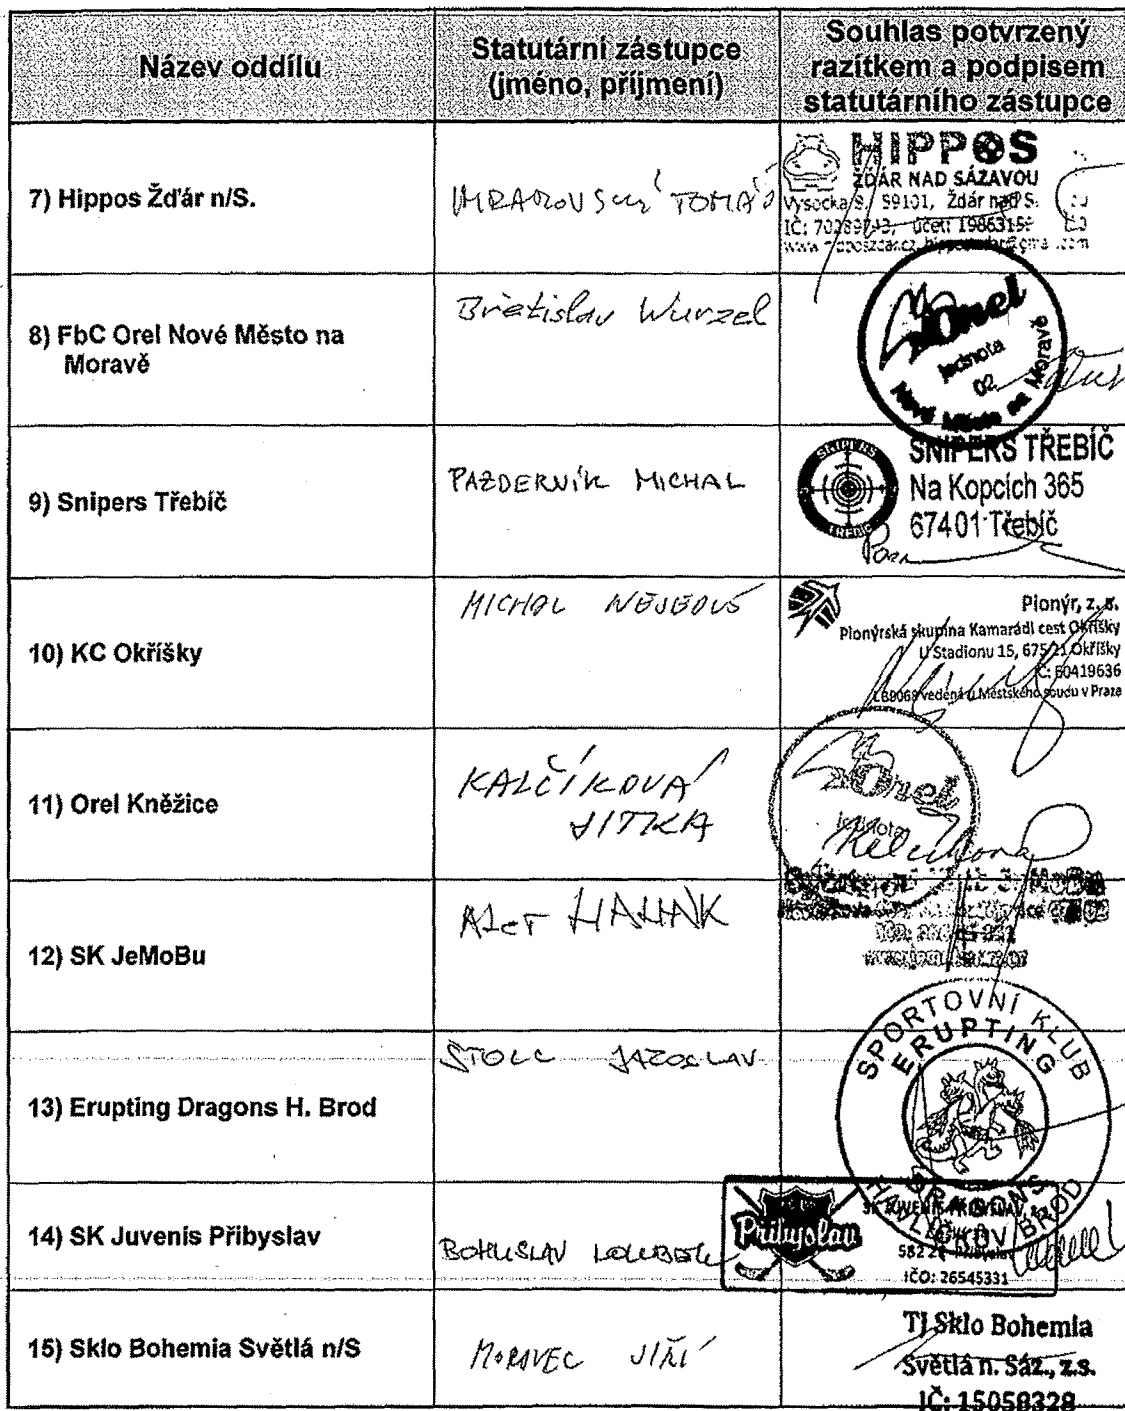 Název oddílu
Statutární zástupce
(jméno, příjmení)
Souhlas potvrzený
razítkem a podpisem
statutárního zástupce
7) Hippos Žďár n/S.
TOMÁŠ
HIPPOS
ŽĎÁR NAD SÁZAVOU
Vysocká 59101, Žďár nad S.
IČ:
8) FbC Orel Nové Město na
Moravě
Břetislav Wurzel
Orel
jednota
02
Nové Město na Moravě
9) Snipers Třebíč
PAZDERNÍK MICHAL
SNIPERS
TŘEBÍČ
SNIPERS TŘEBÍČ
Na Kopcích 365
67401 Třebíč
10) KC Okříšky
MICHAL
Pionýr, z. s.
Pionýrská skupina Kamarádi cest Okříšky
U Stadionu 15, 675 21 Okříšky
60419636
vedená u Městského soudu v Praze
11) Orel Kněžice
KALČÍKOVÁ
JITKA
Orel
jednota
12) SK JeMoBu
13) Erupting Dragons H. Brod
STOLL JAROSLAV
SPORTOVNÍ KLUB
ERUPTING
DRAGONS
HAVLÍČKŮV BROD
14) SK Juvenis Přibyslav
BOHUSLAV
Přibyslav
SK JUVENIS PŘIBYSLAV
IČO: 26545331
15) Sklo Bohemia Světlá n/S
MORAVEC JIŘÍ
TJ Sklo Bohemia
Světlá n. Sáz., z.s.
IČ: 15058328